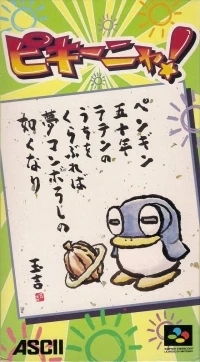 ピキーニャ!
ペンギン
五十年
テテンの
うちを
くらぶれは
夢マンボラしの
如くなり
玉吉
ASCII